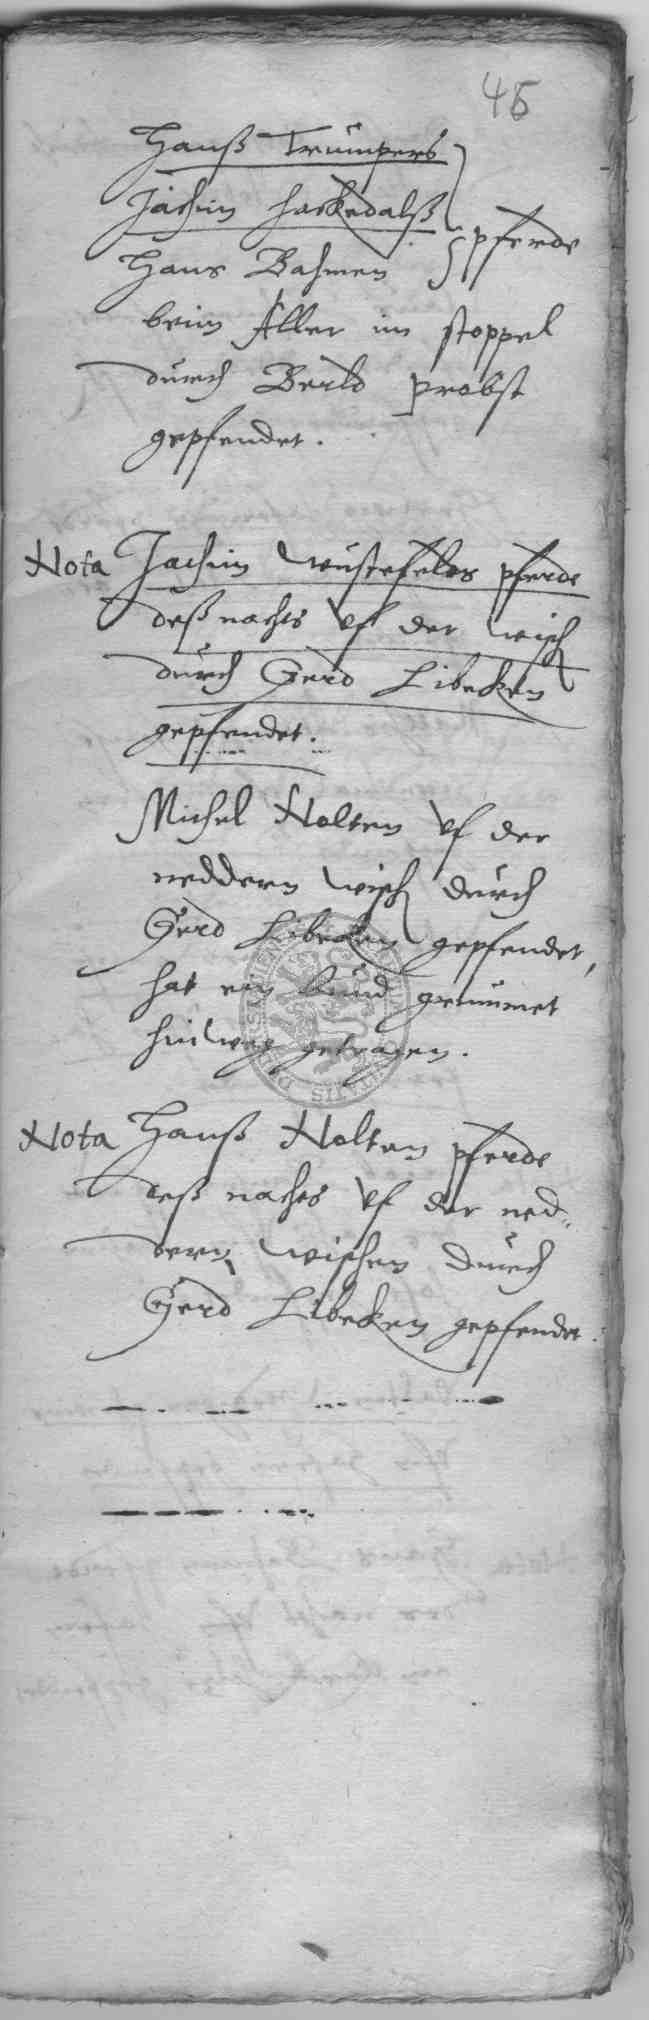 45
Hanß Trümpers
Jachim Hackedalß
Hans Bahmen pferde
beim Aller im stoppel
durch Berld Probst
gepfendet.
Nota Jachim Wüstefeldes pferde
deß nachts vf der wisch
durch Gerd Libeken
gepfendet.
Michel Nolten vf der
neddern wisch durch
Gerd Libeken gepfendet,
hat ein bund
hinweg getragen.
Nota Hanß Nolten pferde
deß nachts vf der ned-
dern wischen durch
Gerd Libeken gepfendet.